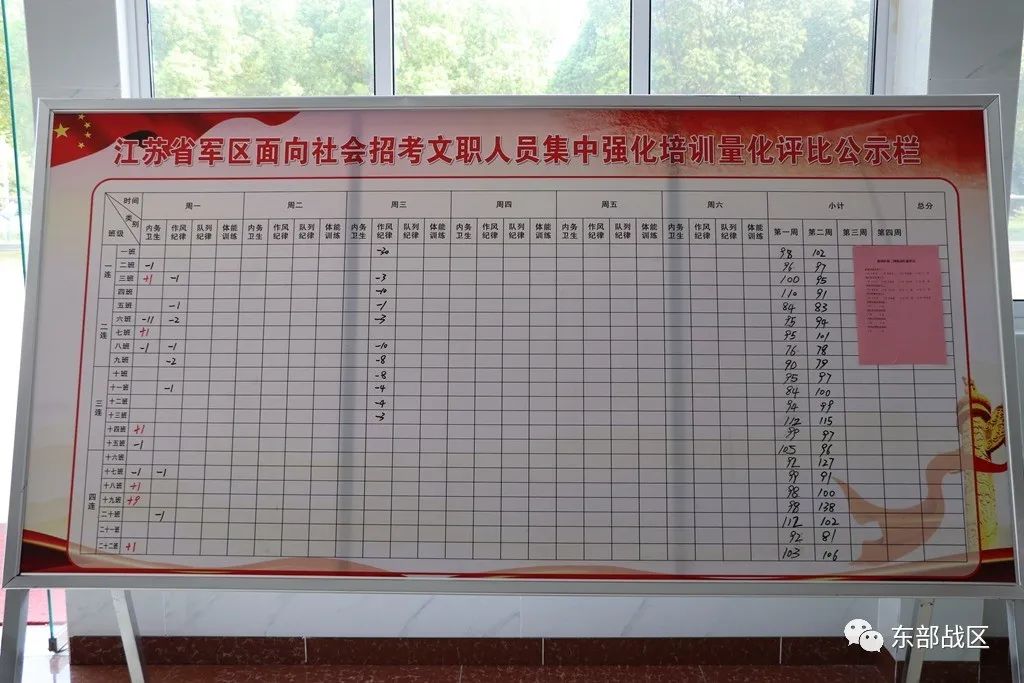 江苏省军区面向社会招考文职人员集中强化培训量化评比公示栏
时间 周一 周二 周三 周四 周五 周六 小计 总分
类别
班级 内务卫生 作风纪律 队列纪律 体能训练 内务卫生 作风纪律 队列纪律 体能训练 内务卫生 作风纪律 队列纪律 体能训练 内务卫生 作风纪律 队列纪律 体能训练 内务卫生 作风纪律 队列纪律 体能训练 内务卫生 作风纪律 队列纪律 体能训练 第一周 第二周 第三周 第四周
一连 一班 98 102
二班 -1 96 97
三班 +1 -1 -3 100 95
四班 110 91
二连 五班 -1 -1 84 83
六班 -11 -2 -3 95 94
七班 +1 95 101
八班 -1 -1 -10 76 78
九班 -2 -8 90 79
十班 -8 95 97
三连 十一班 -1 -4 84 100
十二班 -4 94 99
十三班 -3 112 115
十四班 +1 99 97
十五班 -1 105 96
四连 十六班 92 127
十七班 -1 -1 99 91
十八班 +1 98 100
十九班 +9 98 138
二十班 -1 112 102
二十一班 92 81
二十二班 +1 103 106
东部战区